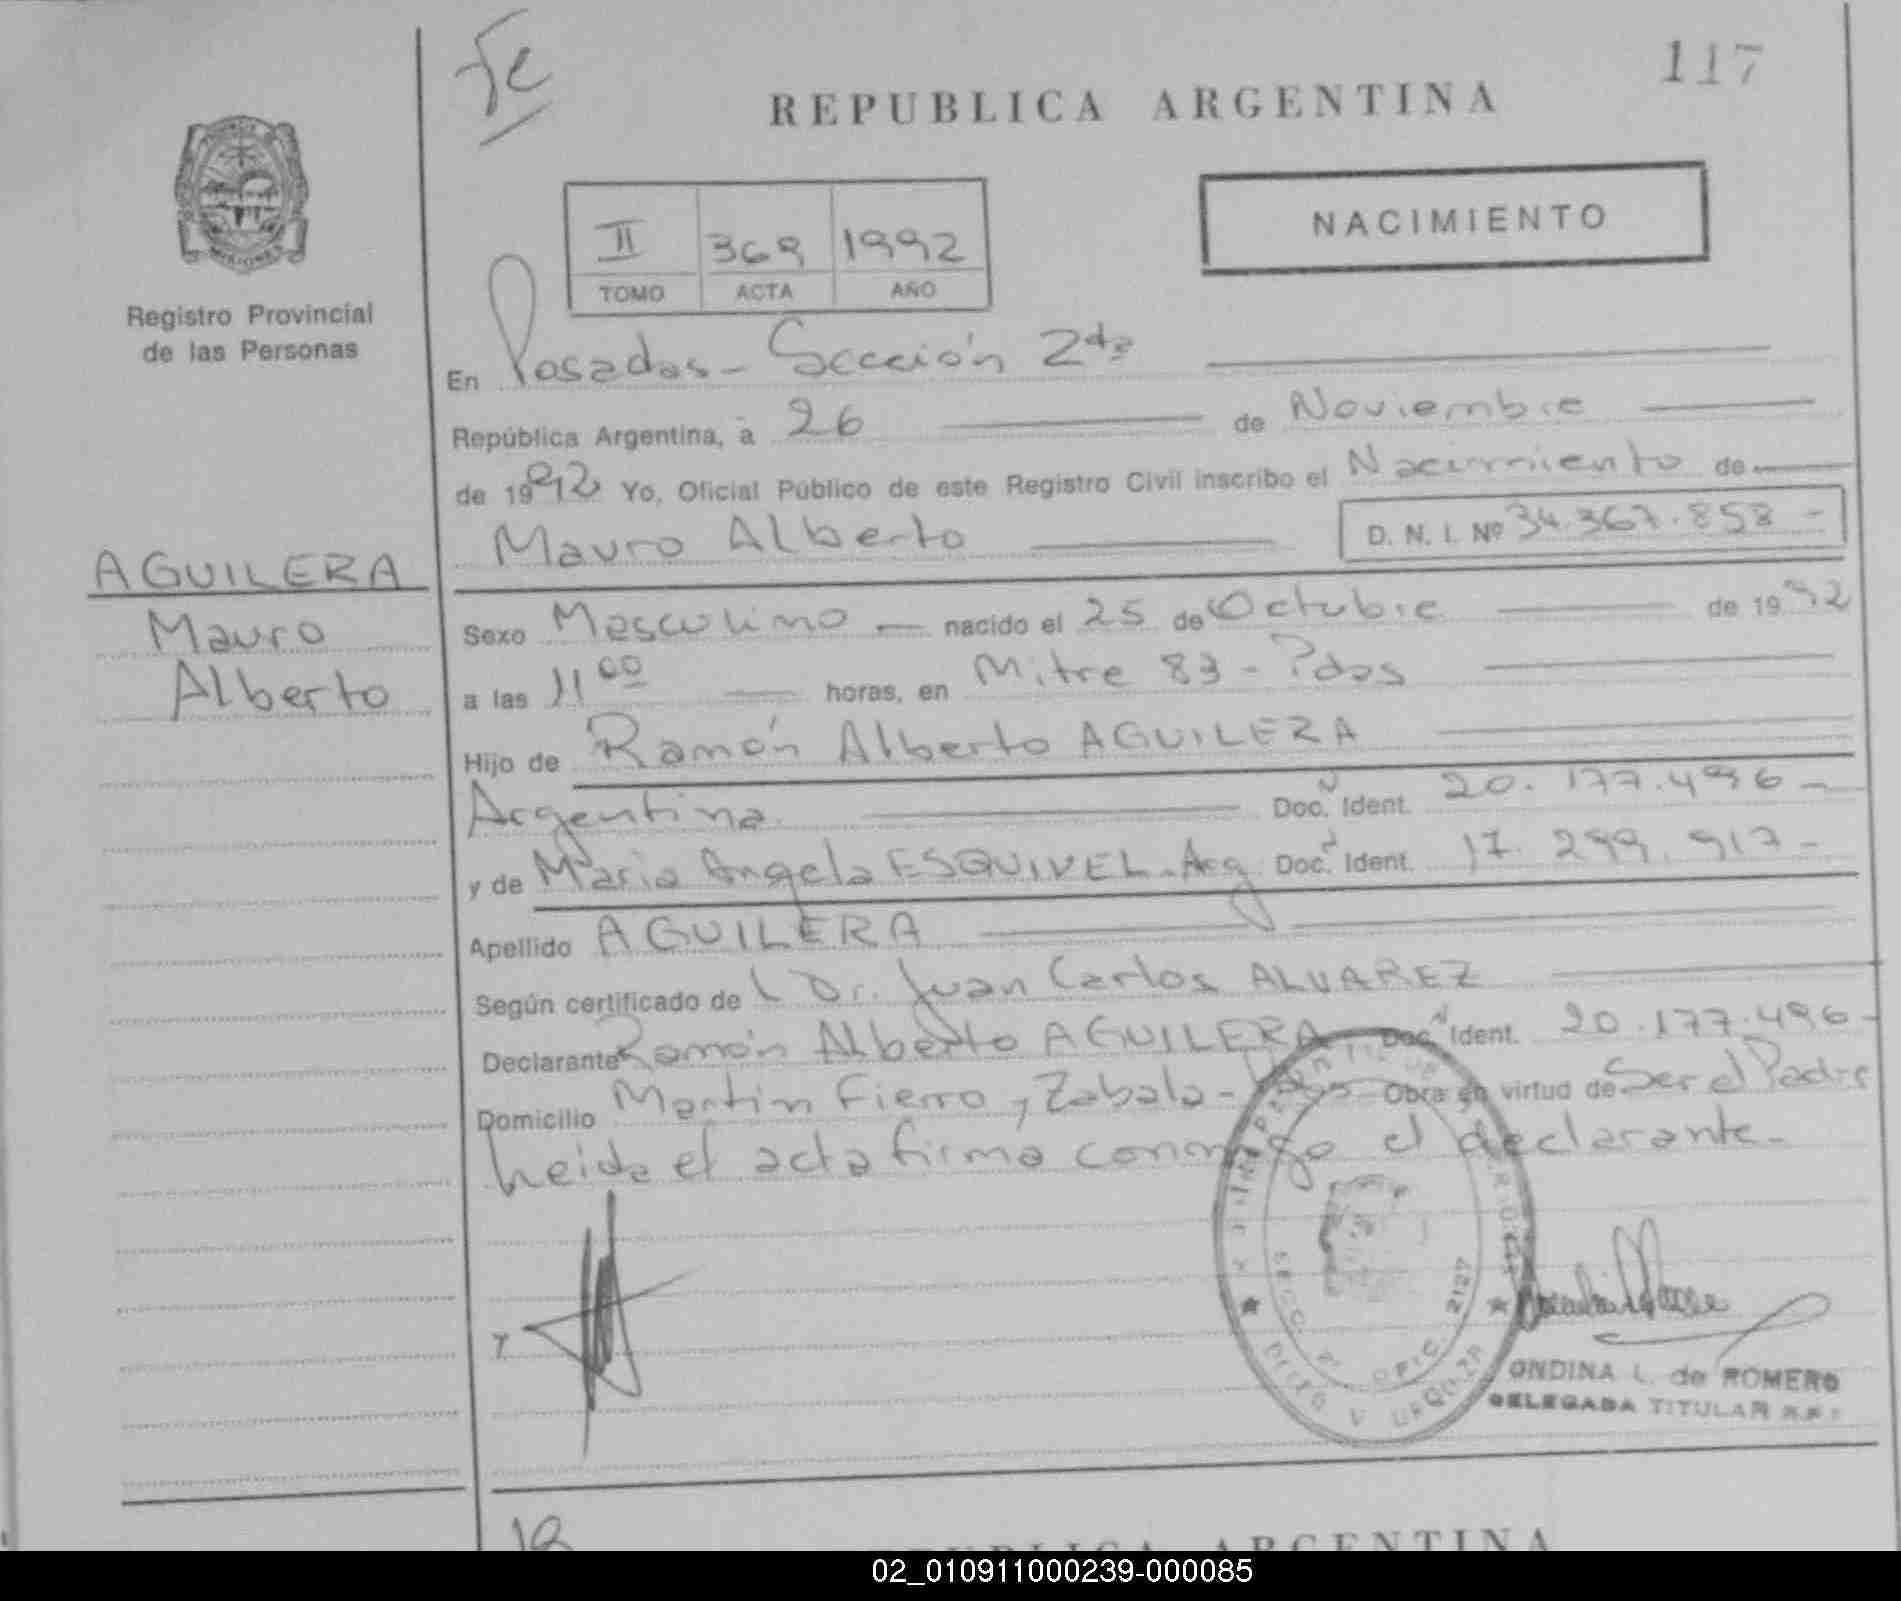 Fe
117
REPUBLICA ARGENTINA
NACIMIENTO
II 369 1992
TOMO ACTA AÑO
Registro Provincial
de las Personas
En Posadas - Sección 2da
República Argentina, a 26 de Noviembre
de 1992 Yo, Oficial Público de este Registro Civil inscribo el Nacimiento de
Mauro Alberto D. N. I. Nº 34.367.858 -
AGUILERA
Mauro
Alberto
Sexo Masculino - nacido el 25 de Octubre de 1992
a las 11 00 horas, en Mitre 83 - Pdas
Hijo de Ramón Alberto AGUILERA
Argentina Doc. Ident. 20.177.496 -
y de Maria Angela ESQUIVEL - Arg Doc. Ident. 17.299.917 -
Apellido AGUILERA
Según certificado de l Dr. Juan Carlos ALVAREZ
Declarante Ramón Alberto AGUILERA Doc. Ident. 20.177.496 -
Domicilio Martin Fierro y Zabala - Obra en virtud de Ser el Padre
Leida el acta firma conmigo el declarante -
SECC. 2ª OFIC. 2127
URQUIZA
ONDINA L. de ROMERO
DELEGADA TITULAR
REPUBLICA ARGENTINA
02_010911000239-000085